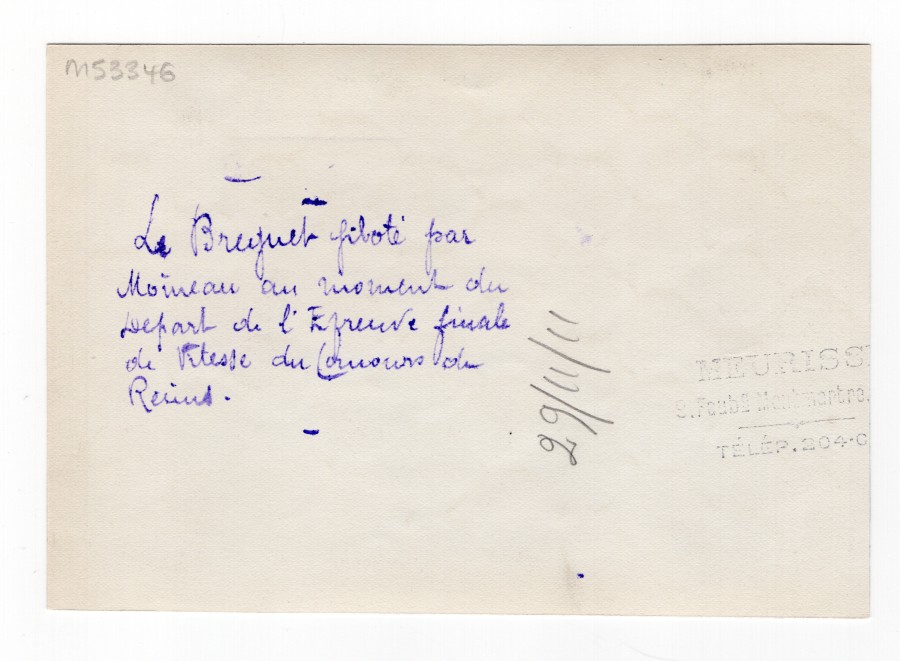 M53346
Le Breguet piloté par
Moineau au moment du
Depart de l'Epreuve finale
de Vitesse du Concours de
Reims.
29/11/11
MEURISSE
9. Faubg Montmartre.
TÉLÉP. 204-